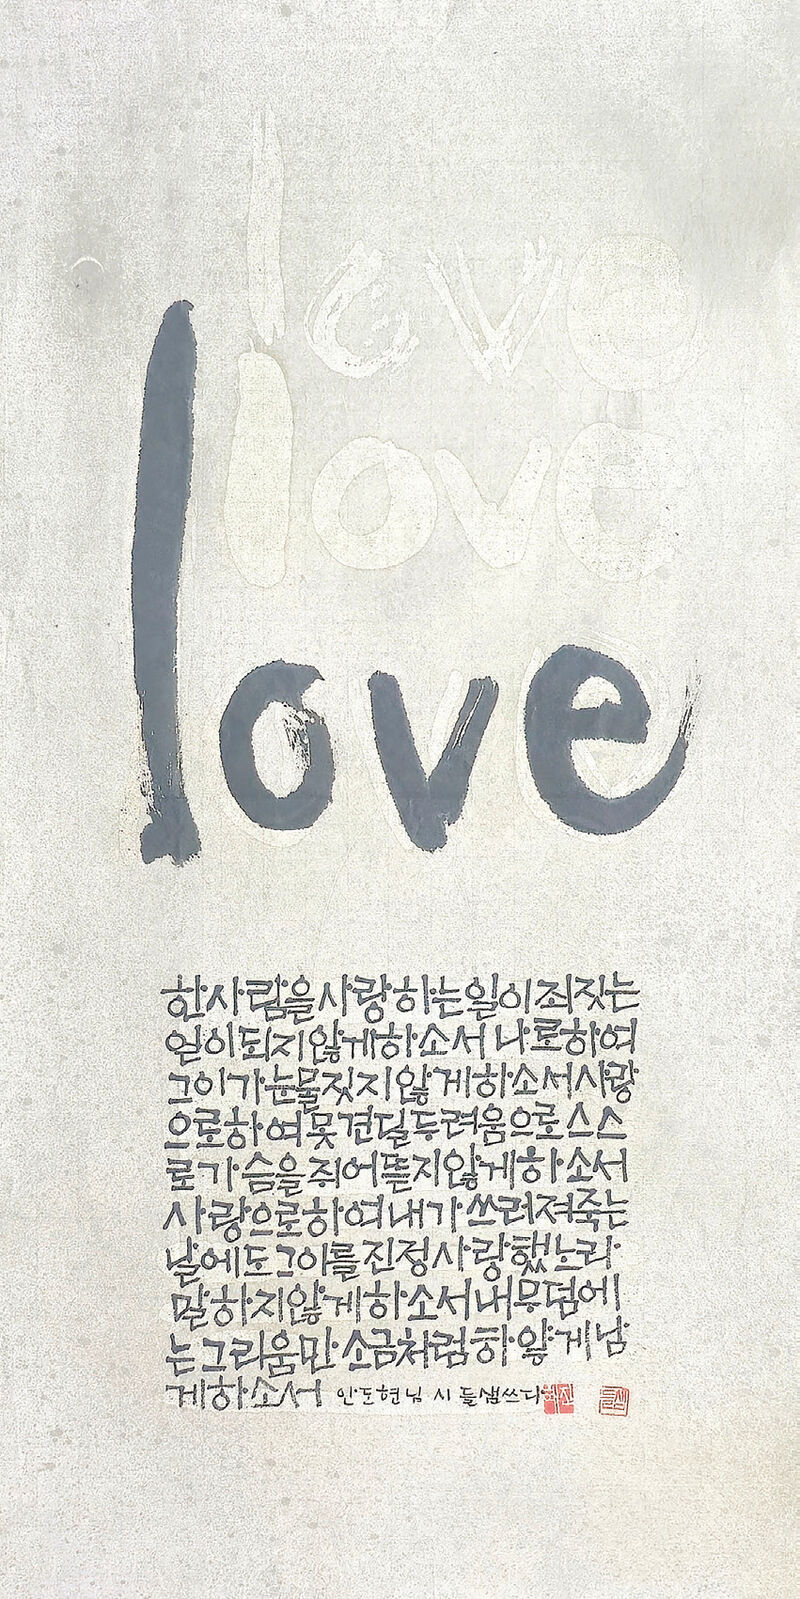 levo
love
love
한사람을사랑하는일이죄짓는
일이되지않게하소서 나로하여
그이가눈물짓지않게하소서사랑
으로하여못견딜두려움으로스스
로가슴을쥐어뜯지않게하소서
사랑으로하여내가쓰러져죽는
날에도그이를진정사랑했노라
말하지않게하소서내무덤에
는그리움만 소금처럼하얗게남
게하소서 안도현님 시 들샘쓰다
들샘